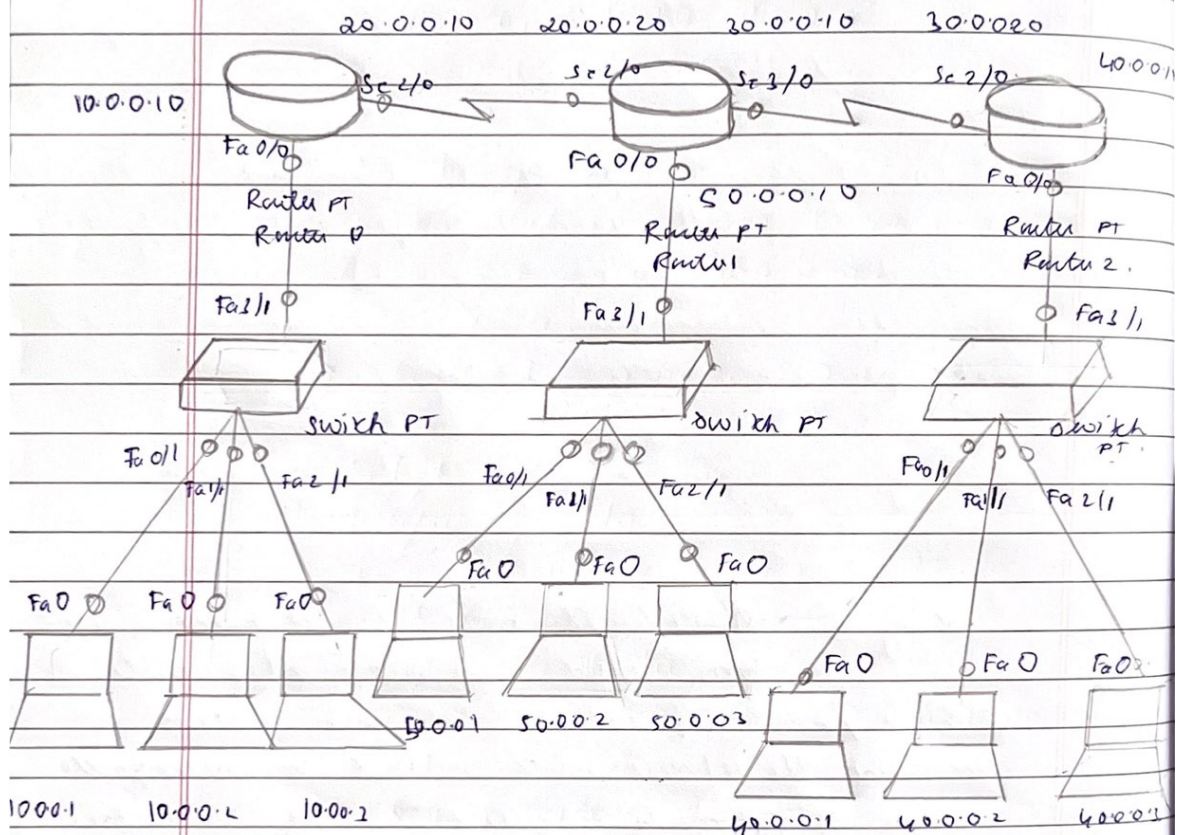 20.0.0.10 20.0.0.20 30.0.0.10 30.0.020
40.0.0.1
10.0.0.10 Se 2/0 Se 2/0 Se 3/0 Se 2/0
Fa 0/0 Fa 0/0 Fa 0/0
50.0.0.10
Router PT Router PT Router PT
Router 0 Router1 Router 2.
Fa3/1 Fa 3/1 Fa3/1
Switch PT Switch PT Switch
PT.
Fa 0/1 Fa1/1 Fa 2/1 Fa0/1 Fa1/1 Fa 2/1 Fa0/1 Fa1/1 Fa 2/1
Fa 0 Fa 0 Fa 0
Fa 0 Fa 0 Fa0
Fa 0 Fa 0 Fa0
50.0.01 50.00.2 50.0.03
1000.1 10.0.0.2 10.00.2 40.0.0.1 40.0.0.2 40.0.0.3